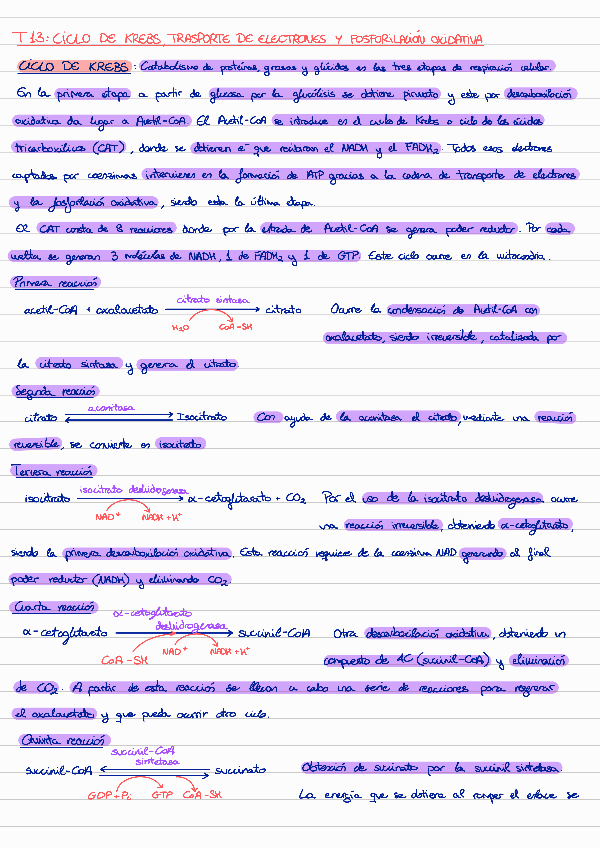 T13: CICLO DE KREBS, TRASPORTE DE ELECTRONES Y FOSFORILACIÓN OXIDATIVA
CICLO DE KREBS: Catabolismo de proteínas, grasas y glúcidos en las tres etapas de respiración celular.
En la primera etapa a partir de glucosa por la glucólisis se obtiene piruvato y este por descarboxilación
oxidativa da lugar a Acetil-CoA. El Acetil-CoA se introduce en el ciclo de Krebs o ciclo de los ácidos
tricarboxílicos (CAT), donde se obtienen e⁻ que reciben el NADH y el FADH₂. Todos esos electrones
captados por coenzimas intervienen en la formación de ATP gracias a la cadena de transporte de electrones
y la fosforilación oxidativa, siendo esta la última etapa.
El CAT consta de 8 reacciones donde por la entrada de Acetil-CoA se genera poder reductor. Por cada
vuelta se generan 3 moléculas de NADH, 1 de FADH₂ y 1 de GTP. Este ciclo ocurre en la mitocondria.
Primera reacción
citrato sintasa
acetil-CoA + oxalacetato → citrato Ocurre la condensación de Acetil-CoA con
H₂O CoA-SH
oxalacetato, siendo irreversible, catalizada por
la citrato sintasa y genera el citrato.
Segunda reacción
aconitasa
citrato Isocitrato Con ayuda de la aconitasa el citrato, mediante una reacción
reversible, se convierte en isocitrato
Tercera reacción
isocitrato deshidrogenasa
isocitrato → α-cetoglutarato + CO₂ Por el uso de la isocitrato deshidrogenasa ocurre
NAD⁺ NADH + H⁺
una reacción irreversible, obteniendo α-cetoglutarato,
siendo la primera descarboxilación oxidativa. Esta reacción requiere de la coenzima NAD generando al final
poder reductor (NADH) y eliminando CO₂.
Cuarta reacción
α-cetoglutarato
deshidrogenasa
α-cetoglutarato → succinil-CoA Otra descarboxilación oxidativa, obteniendo un
CoA-SH NAD⁺ NADH + H⁺
compuesto de 4C (succinil-CoA) y eliminación
de CO₂. A partir de esta reacción se llevan a cabo una serie de reacciones para regenerar
el oxalacetato y que pueda ocurrir otro ciclo.
Quinta reacción
succinil-CoA
sintetasa
succinil-CoA succinato Obtención de succinato por la succinil sintetasa.
GDP + Pi GTP CoA-SH
La energía que se obtiene al romper el enlace se